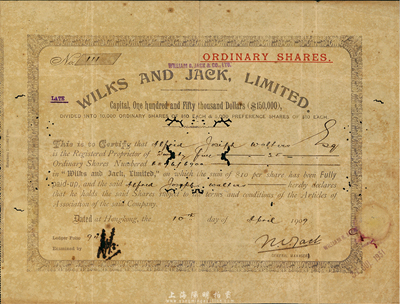 No. 111
ORDINARY SHARES.
WILLIAM C. JACK & CO., LTD.
LATE
WILKS AND JACK, LIMITED.
Capital, One hundred and Fifty thousand Dollars ($150,000),
DIVIDED INTO 10,000 ORDINARY SHARES OF $10 EACH & 5,000 PREFERENCE SHARES OF $10 EACH.
This is to Certify that Alfred Joseph Esq
is the Registered Proprietor of Twenty five 25
Ordinary Shares Numbered
in "Wilks and Jack, Limited," on which the sum of $10 per share has been Fully
paid-up, and the said Alfred Joseph hereby declares
that he holds the said Shares on the terms and conditions of the Articles of
Association of the said Company.
Dated at Hongkong, the 10th day of April 1909
Ledger Folio 92
Examined by
W. Jack
GENERAL MANAGER.
上海陽明拍賣